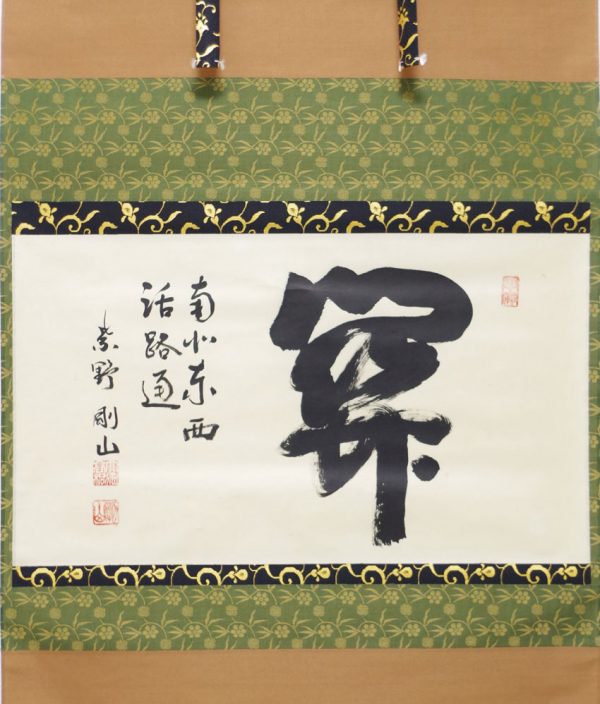 關
南北東西
活路通
紫野 剛山